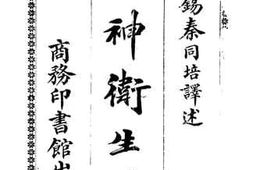 錫秦同培譯述
神衛生
商務印書館